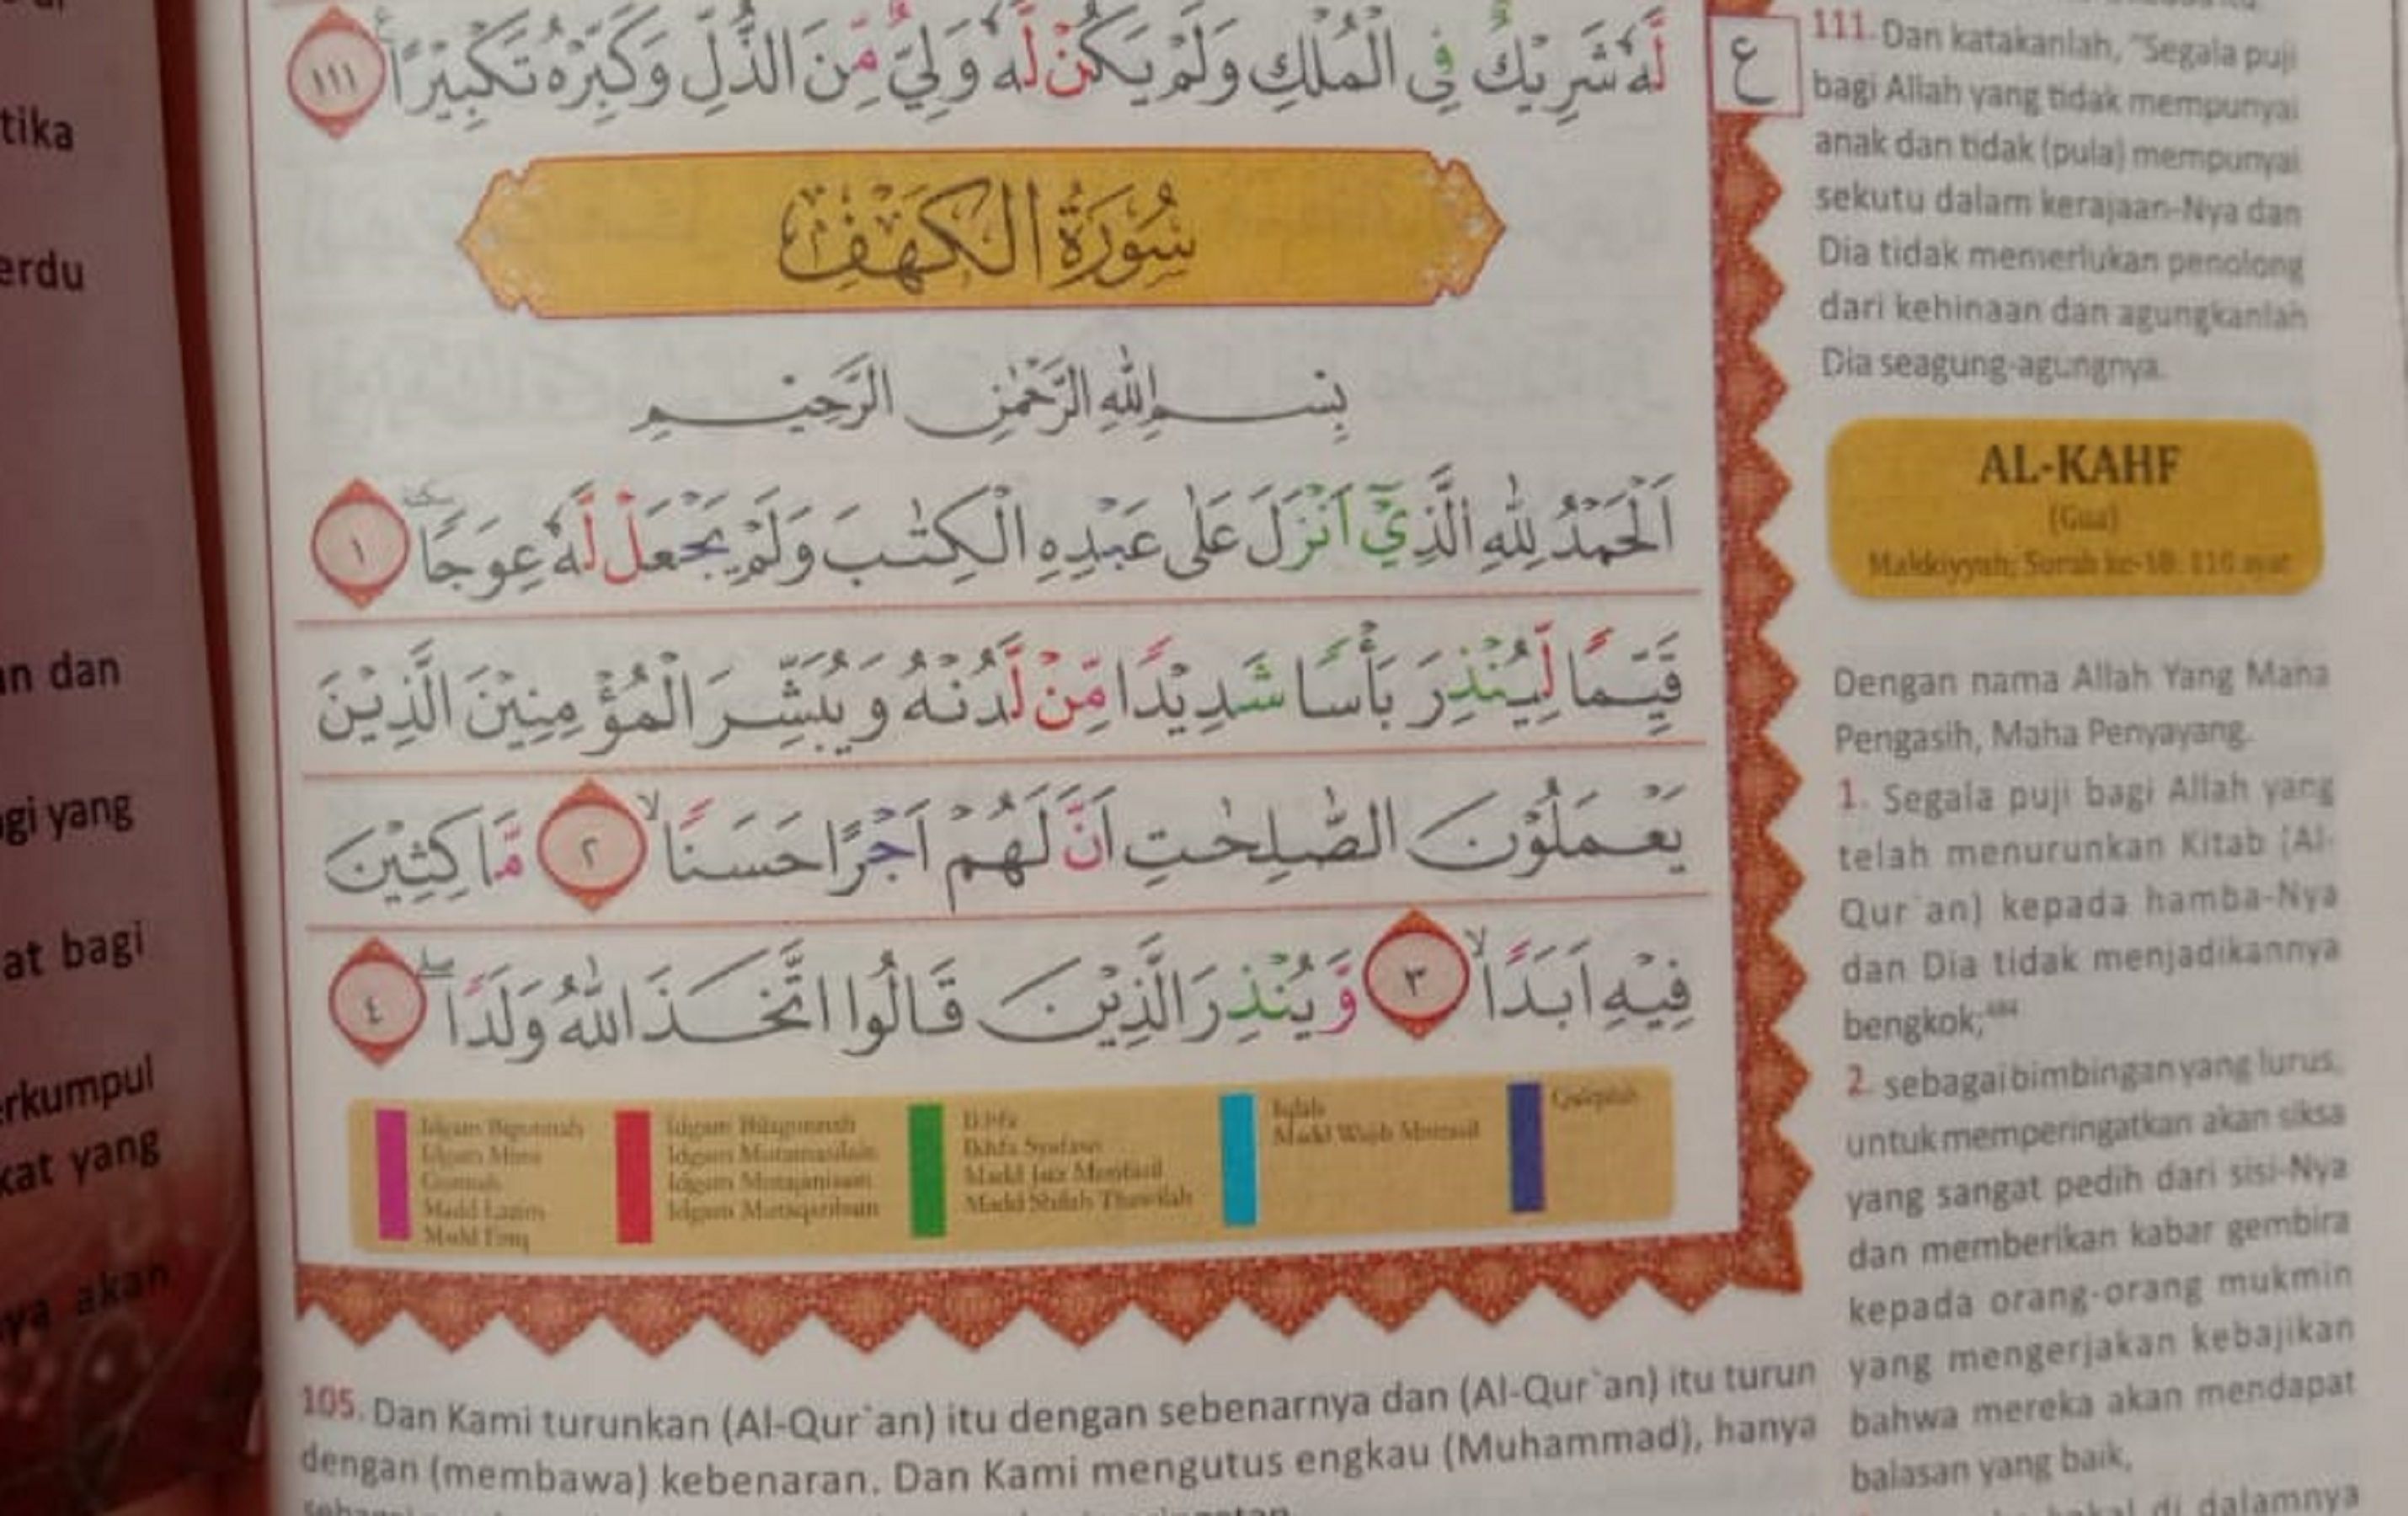 tika
erdu
un dan
gi yang
at bagi
erkumpul
kat yang
ya akan
لَّهٗ شَرِيْكٌ فِى الْمُلْكِ وَلَمْ يَكُنْ لَّهٗ وَلِيٌّ مِّنَ الذُّلِّ وَكَبِّرْهُ تَكْبِيْرًا ࣖ ١١١
ع
سُوْرَةُ الْكَهْفِ
بِسْمِ اللّٰهِ الرَّحْمٰنِ الرَّحِيْمِ
اَلْحَمْدُ لِلّٰهِ الَّذِيْٓ اَنْزَلَ عَلٰى عَبْدِهِ الْكِتٰبَ وَلَمْ يَجْعَلْ لَّهٗ عِوَجًا ۜ ١
قَيِّمًا لِّيُنْذِرَ بَأْسًا شَدِيْدًا مِّنْ لَّدُنْهُ وَيُبَشِّرَ الْمُؤْمِنِيْنَ الَّذِيْنَ
يَعْمَلُوْنَ الصّٰلِحٰتِ اَنَّ لَهُمْ اَجْرًا حَسَنًاۙ ٢ مَّاكِثِيْنَ
فِيْهِ اَبَدًاۙ ٣ وَّيُنْذِرَ الَّذِيْنَ قَالُوا اتَّخَذَ اللّٰهُ وَلَدًاۖ ٤
Idgam Bigunnah
Idgam Mimi
Gunnah
Madd Lazim
Madd Farq
Idgam Bilagunnah
Idgam Mutamasilain
Idgam Mutajanisain
Idgam Mutaqaribain
Ikhfa
Ikhfa Syafawi
Madd Jaiz Munfasil
Madd Shilah Thawilah
Iqlab
Madd Wajib Muttasil
Qalqalah
105. Dan Kami turunkan (Al-Qur`an) itu dengan sebenarnya dan (Al-Qur`an) itu turun
dengan (membawa) kebenaran. Dan Kami mengutus engkau (Muhammad), hanya
111. Dan katakanlah, "Segala puji
bagi Allah yang tidak mempunyai
anak dan tidak (pula) mempunyai
sekutu dalam kerajaan-Nya dan
Dia tidak memerlukan penolong
dari kehinaan dan agungkanlah
Dia seagung-agungnya.
AL-KAHF
(Gua)
Makkiyyah; Surah ke-18: 110 ayat
Dengan nama Allah Yang Maha
Pengasih, Maha Penyayang.
1. Segala puji bagi Allah yang
telah menurunkan Kitab (Al-
Qur`an) kepada hamba-Nya
dan Dia tidak menjadikannya
bengkok;
2. sebagai bimbingan yang lurus,
untuk memperingatkan akan siksa
yang sangat pedih dari sisi-Nya
dan memberikan kabar gembira
kepada orang-orang mukmin
yang mengerjakan kebajikan
bahwa mereka akan mendapat
balasan yang baik,
di dalamnya